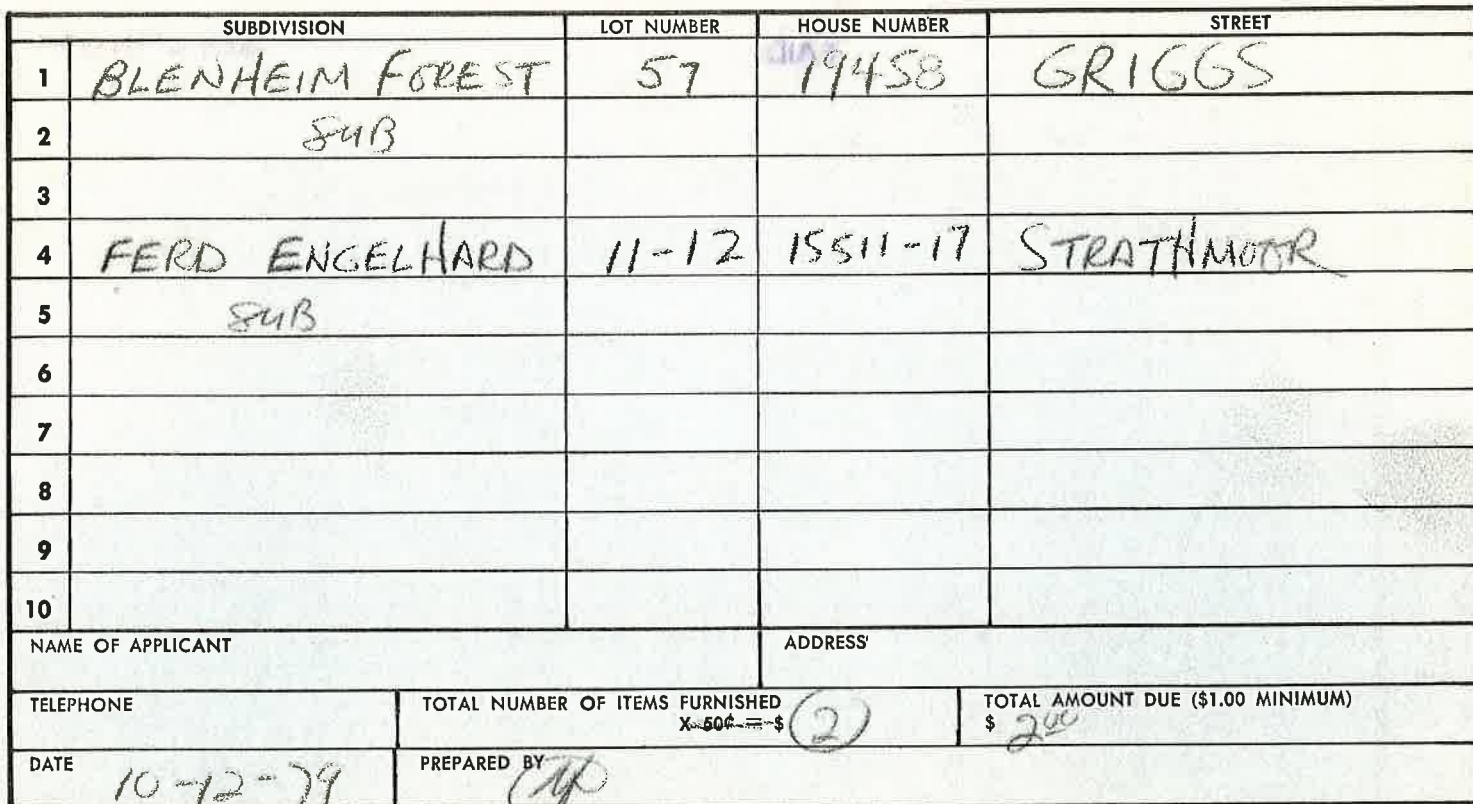 SUBDIVISION LOT NUMBER HOUSE NUMBER STREET
1 BLENHEIM FOREST 57 19458 GRIGGS
2 SUB
3
4 FERD ENGELHARD 11-12 15511-17 STRATHMOOR
5 SUB
6
7
8
9
10
NAME OF APPLICANT ADDRESS
TELEPHONE TOTAL NUMBER OF ITEMS FURNISHED TOTAL AMOUNT DUE ($1.00 MINIMUM)
X 50¢ = $ 2 $ 2 00
DATE 10-12-79 PREPARED BY